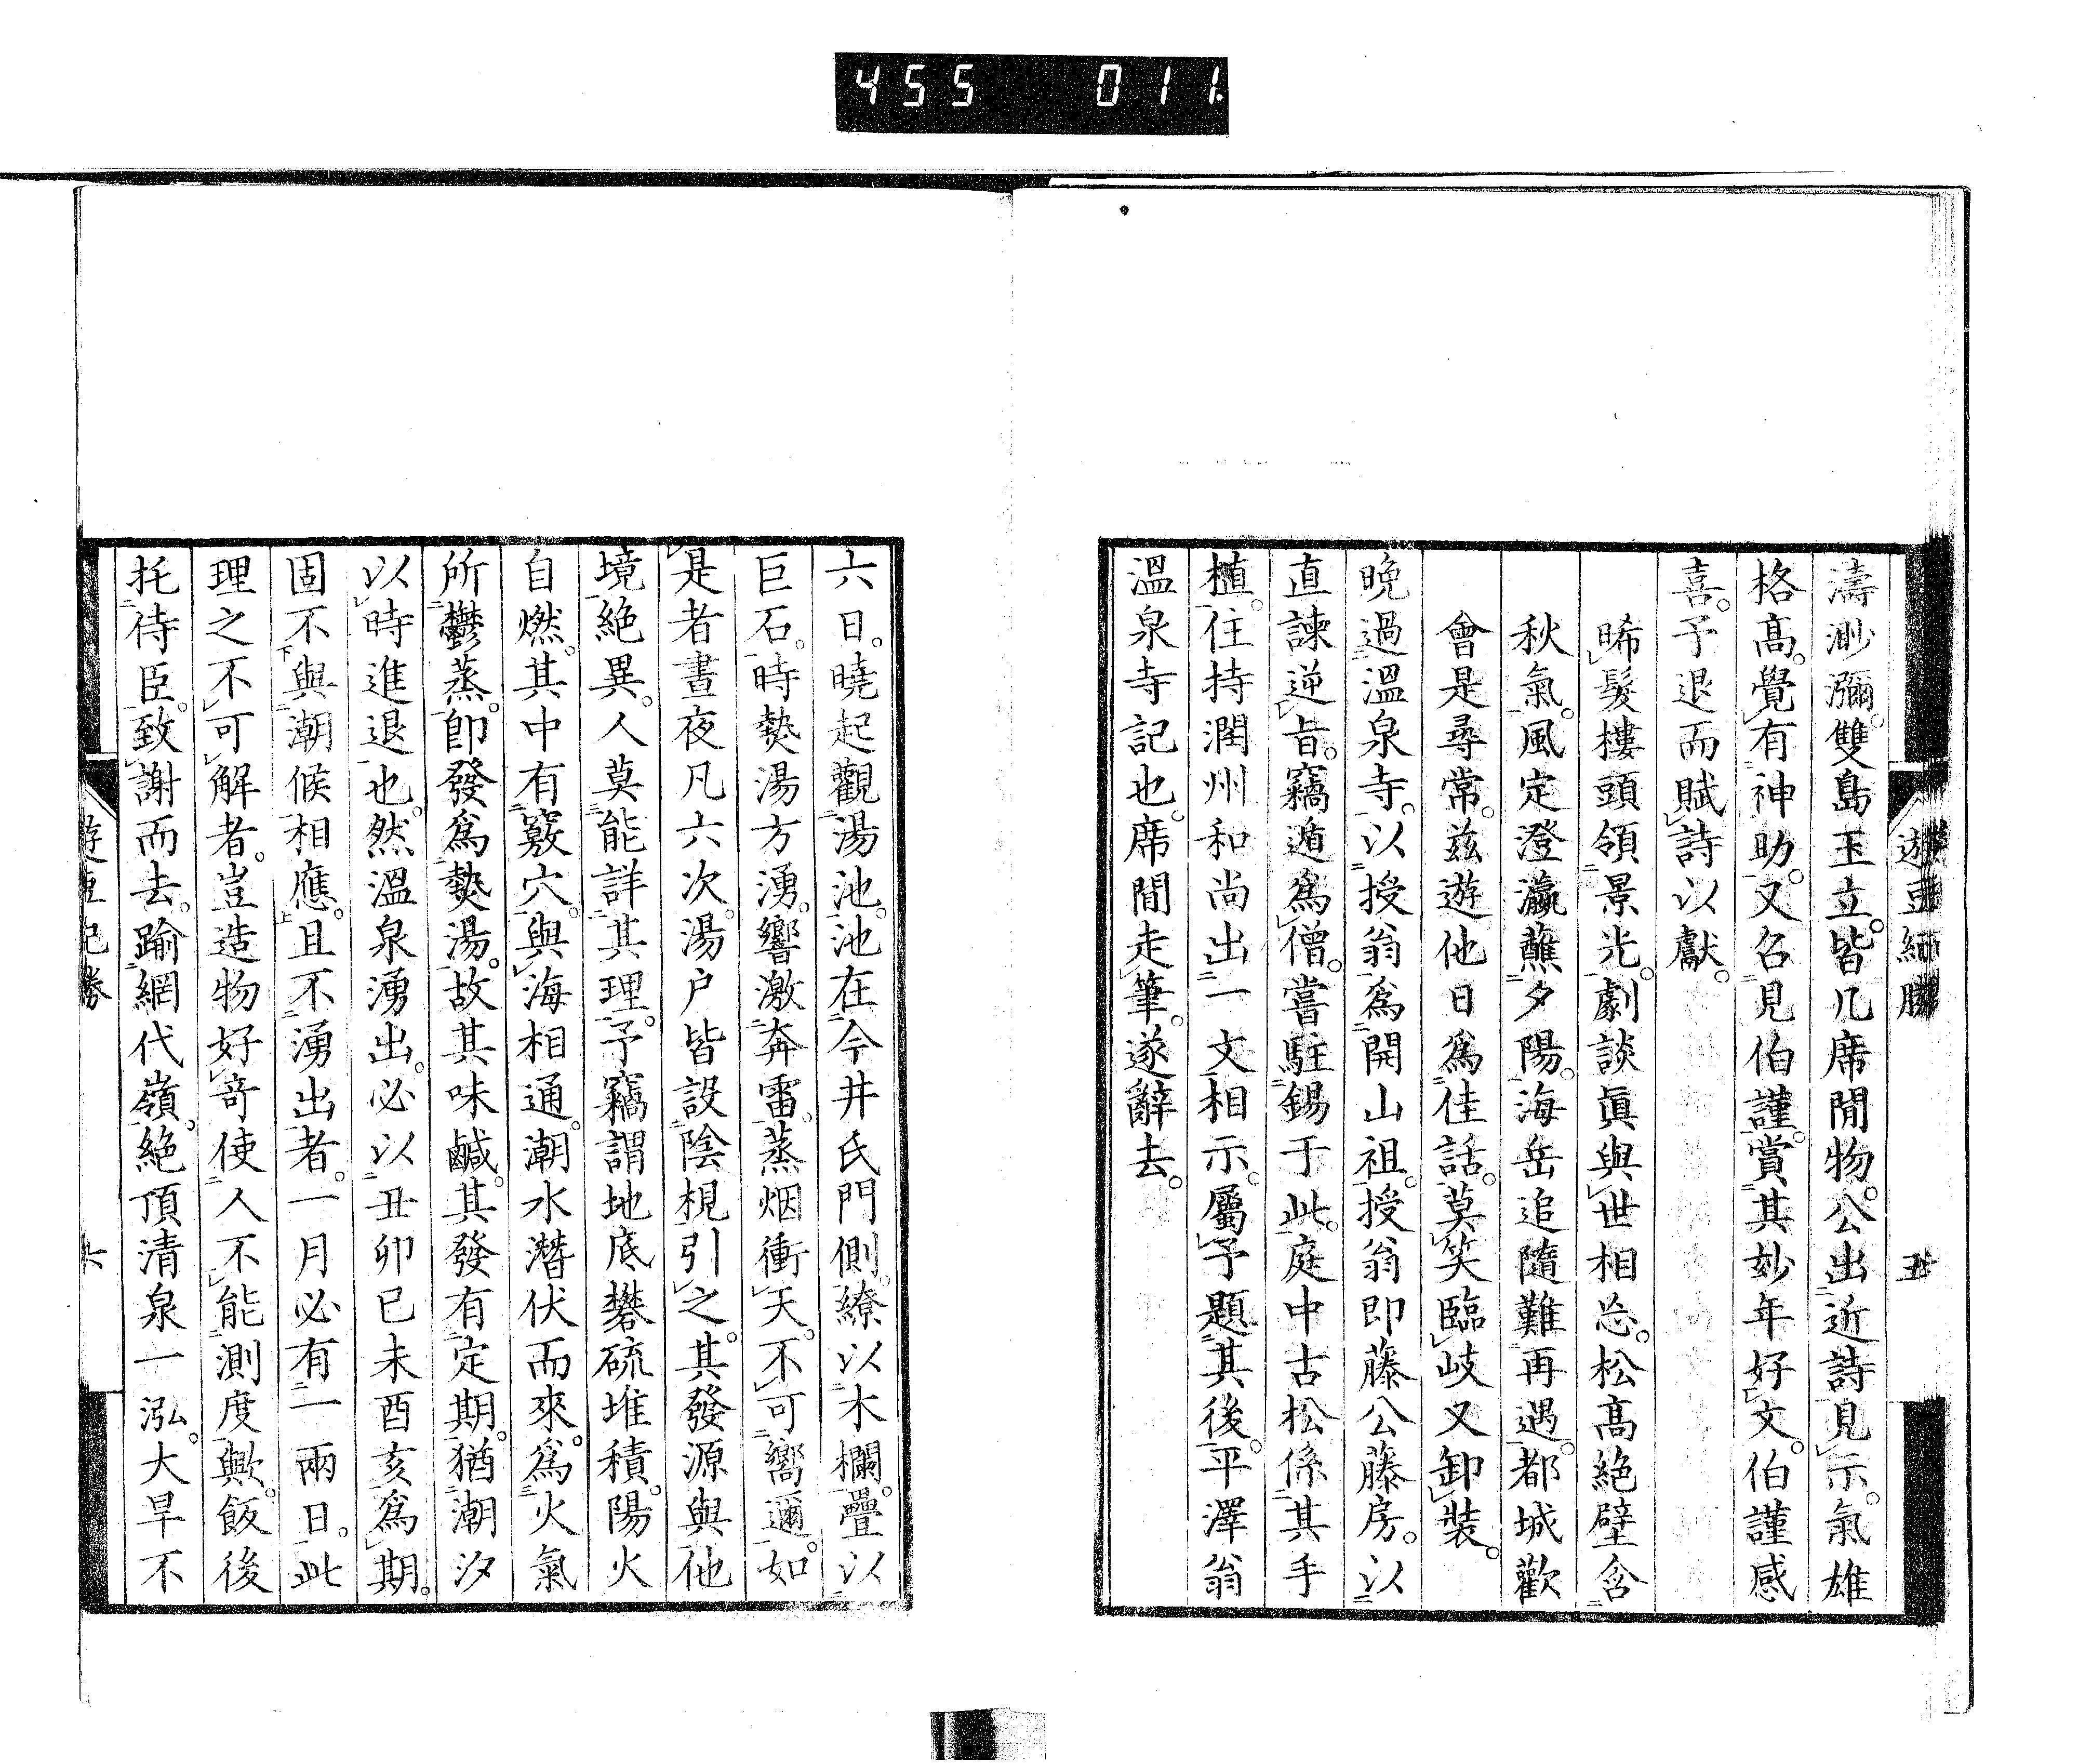 455 011
遊豆紀勝 五
濤渺瀰。雙島玉立。皆几席間物。公出近詩見示。氣雄
格髙。覺有神助。又召見伯謹。賞其妙年好文。伯謹感
喜。予退而賦詩以獻。
晞髮樓頭領景光。劇談眞與世相忘。松髙絶壁含
秋氣。風定澄瀛蘸夕陽。海岳追隨難再遇。都城歡
會是尋常。兹遊他日爲佳話。莫笑臨岐又卸裝。
晩過溫泉寺。以授翁爲開山祖。授翁即藤公藤房。以
直諫逆旨。竊遁爲僧。嘗駐錫于此。庭中古松係其手
植。住持潤州和尚出一文相示。屬予題其後。平澤翁
溫泉寺記也。席間走筆。遂辭去。
六日。曉起觀湯池。池在今井氏門側。繚以木欄。疊以
巨石。時熱湯方湧。響激奔雷。蒸烟衝天。不可嚮邇。如
是者晝夜凡六次。湯户皆設陰梘引之。其發源與他
境絶異。人莫能詳其理。予竊謂地底礬硫堆積。陽火
自燃。其中有竅穴。與海相通。潮水潛伏而來。爲火氣
所鬱蒸。即發爲熱湯。故其味鹹。其發有定期。猶潮汐
以時進退也。然溫泉湧出。必以丑卯巳未酉亥爲期。
固不與潮候相應。且不湧出者。一月必有一兩日。此
理之不可解者。豈造物好奇使人不能測度歟。飯後
托待臣。致謝而去。踰網代嶺。絶頂清泉一泓。大旱不
遊豆紀勝 六